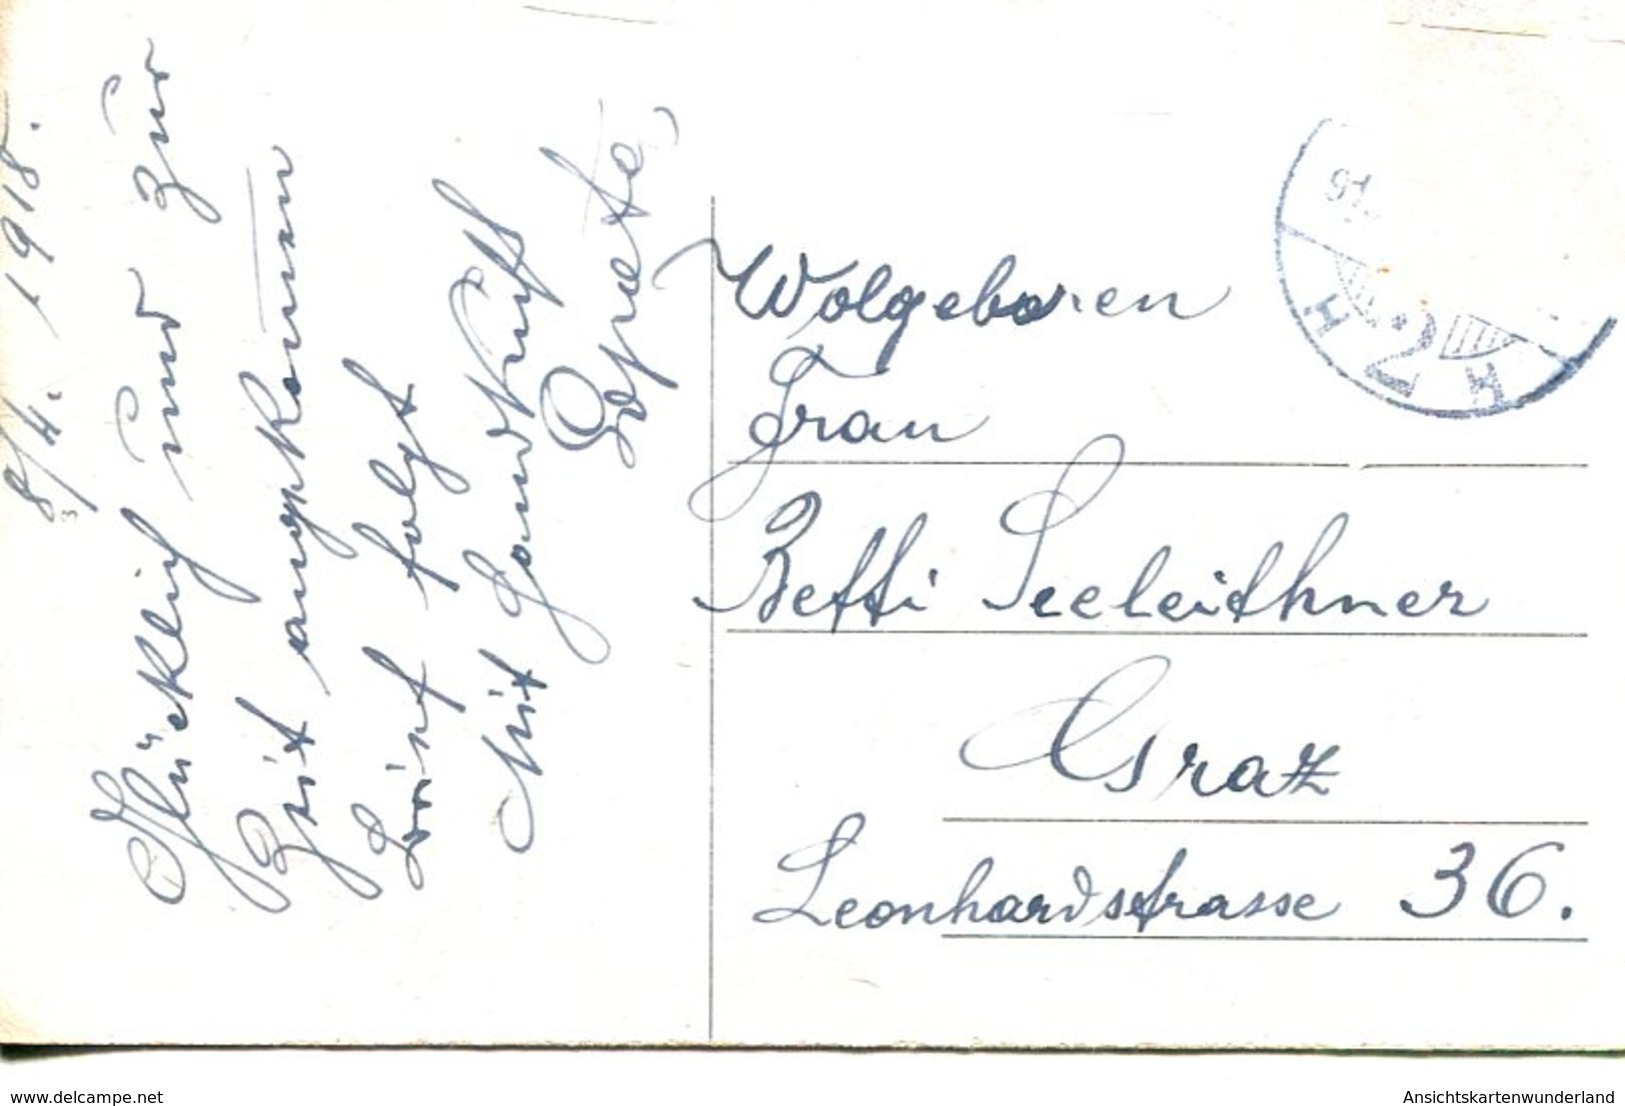 8/4. 1918.
Glücklich und zur
Zeit angekommen
Brief folgt
Mit Handkuß
Wolgeboren
Frau
Betti Seeleithner
Graz
Leonhardstrasse 36.
www.delcampe.net
Ansichtskartenwunderland